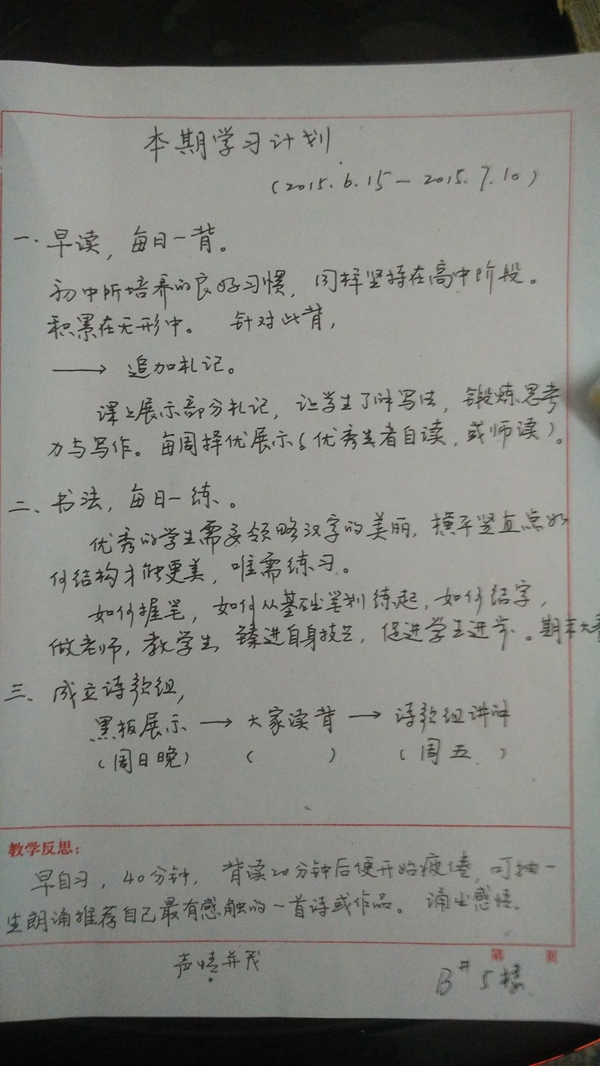 本期学习计划
(2015.6.15—2015.7.10)
一、早读，每日一背。
初中所培养的良好习惯，同样坚持在高中阶段。
积累在无形中。 针对此背，
→ 追加札记。
课上展示部分札记，让学生了解写法，锻炼思考
力与写作。每周择优展示(优秀生者自读，或师读)。
二、书法，每日一练。
优秀的学生需要领略汉字的美丽，横平竖直点如
何结构才能更美，唯需练习。
如何握笔，如何从基础笔划练起，如何结字，
做老师，教学生，臻进自身技艺，促进学生进步。期末大赛
三、成立诗歌组，
黑板展示 → 大家读背 → 诗歌组讲评
(周日晚) ( ) (周五 )
教学反思：
早自习，40分钟，背读20分钟后便开始疲倦，可抽一
生朗诵推荐自己最有感触的一首诗或作品。诵出感悟。
声情并茂
第 页
B# 5楼